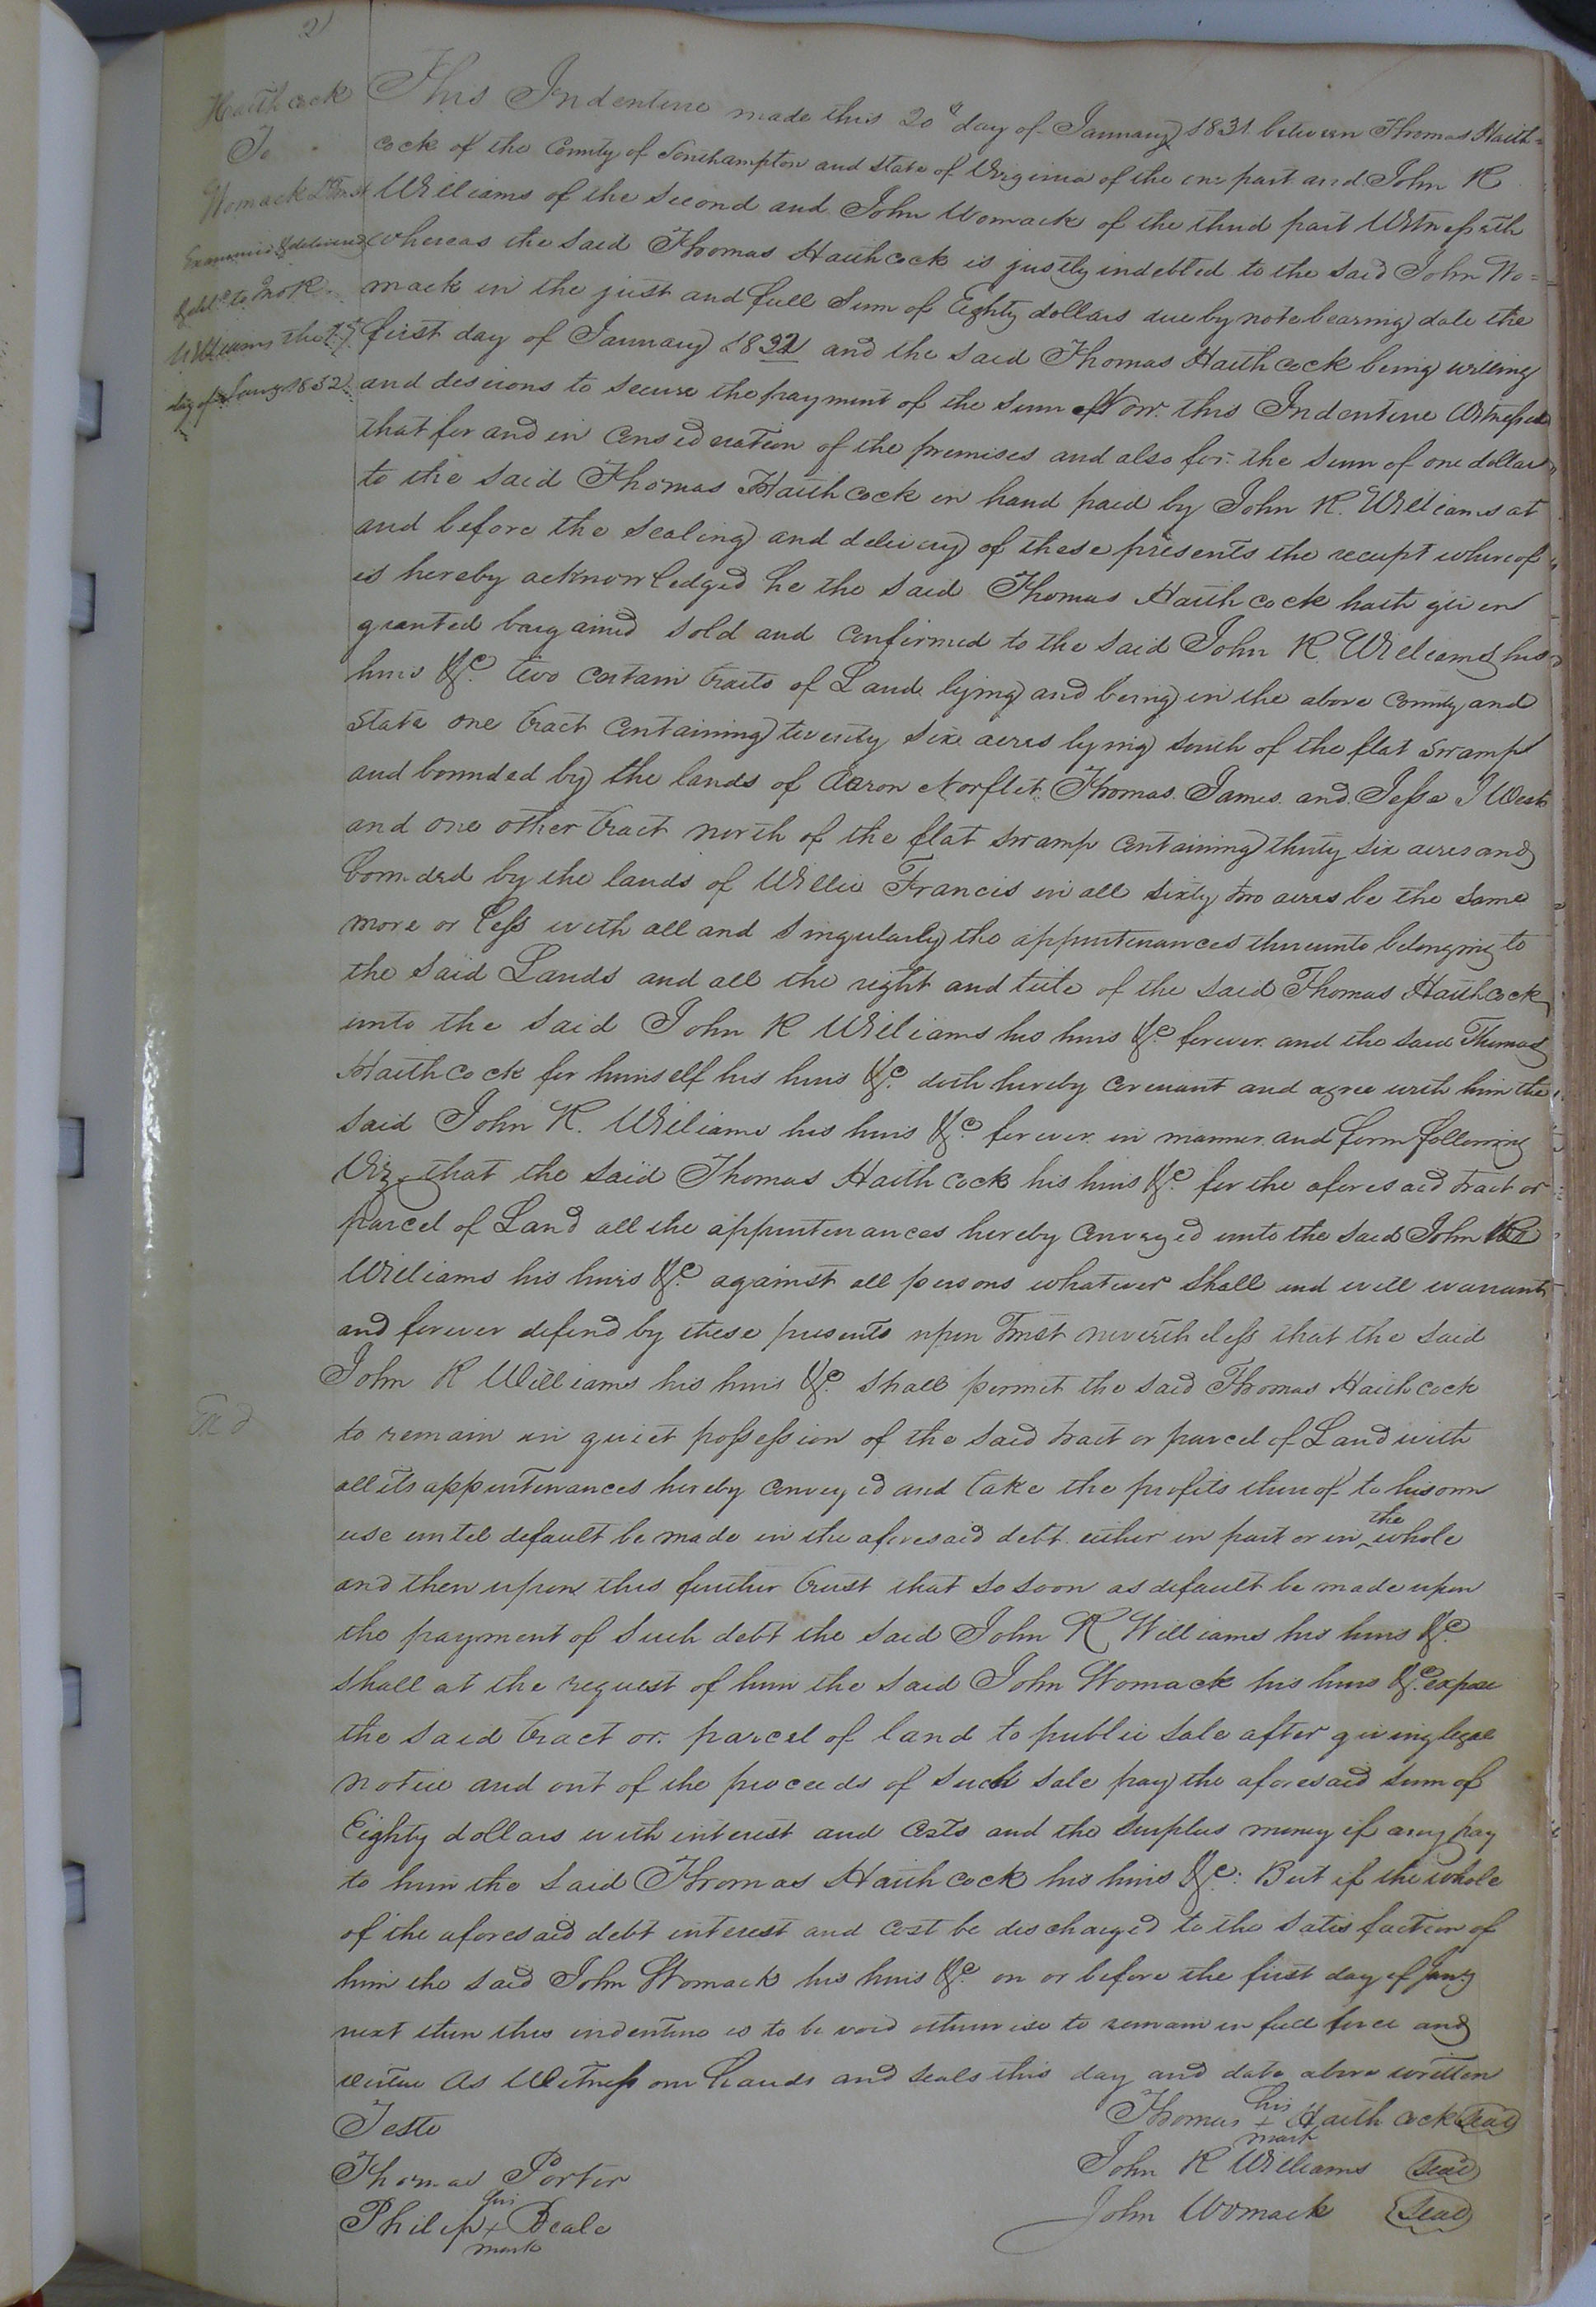 2
Haithcock
To
Womack D Trust
Examined & delivered
& deld. to Jno R.
Williams the
day of Jany 1832
This Indenture made this 20th day of January 1831 between Thomas Haith=
cock of the County of Southampton and state of Virginia of the one part and John R
Williams of the second and John Womack of the third part Witnesseth
whereas the said Thomas Haithcock is justly indebted to the said John Wo=
mack in the just and full Sum of Eighty dollars due by note bearing date the
first day of January 1831 and the said Thomas Haithcock being willing
and desirous to secure the payment of the sum of Now this Indenture Witnesseth
that for and in consideration of the premises and also for the sum of one dollar
to the said Thomas Haithcock in hand paid by John R. Williams at
and before the sealing and delivery of these presents the receipt whereof
is hereby acknowledged he the said Thomas Haithcock hath given
granted bargained sold and confirmed to the said John R. Williams his
heirs &c. two certain tracts of Land lying and being in the above County and
State one tract containing twenty six acres lying south of the flat swamp
and bounded by the lands of Aaron Norflet Thomas James and Jesse J West
and one other tract north of the flat swamp containing thirty six acres and
bounded by the lands of Willie Francis in all sixty two acres be the same
more or less with all and singularly the appurtenances thereunto belonging to
the said Lands and all the right and title of the said Thomas Haithcock
unto the said John R Williams his heirs &c. forever and the said Thomas
Haithcock for himself his heirs &c. doth hereby covenant and agree with him the
said John R. Williams his heirs &c. forever in manner and form following
Viz that the said Thomas Haithcock his heirs &c. for the aforesaid tract or
parcel of Land all the appurtenances hereby conveyed unto the said John R
Williams his heirs &c. against all persons whatever shall and will warrant
and forever defend by these presents upon Trust nevertheless that the said
John R Williams his heirs &c. shall permit the said Thomas Haithcock
to remain in quiet possession of the said tract or parcel of Land with
all its appurtenances hereby conveyed and take the profits thereof to his own
use until default be made in the aforesaid debt either in part or in the whole
and then upon this further trust that so soon as default be made upon
the payment of such debt the said John R Williams his heirs &c.
shall at the request of him the said John Womack his heirs &c. expose
the said tract or parcel of land to public sale after giving legal
notice and out of the proceeds of such sale pay the aforesaid sum of
Eighty dollars with interest and Costs and the surplus money if any pay
to him the said Thomas Haithcock his heirs &c. But if the whole
of the aforesaid debt interest and cost be discharged to the satisfaction of
him the said John Womack his heirs &c. on or before the first day of Jany
next then this indenture is to be void otherwise to remain in full force and
virtue As Witness our hands and seals this day and date above written
Teste
Thomas his + mark Haithcock Seal
Thomas Porter
John R Williams Seal
Philip his + mark Beale
John Womack Seal